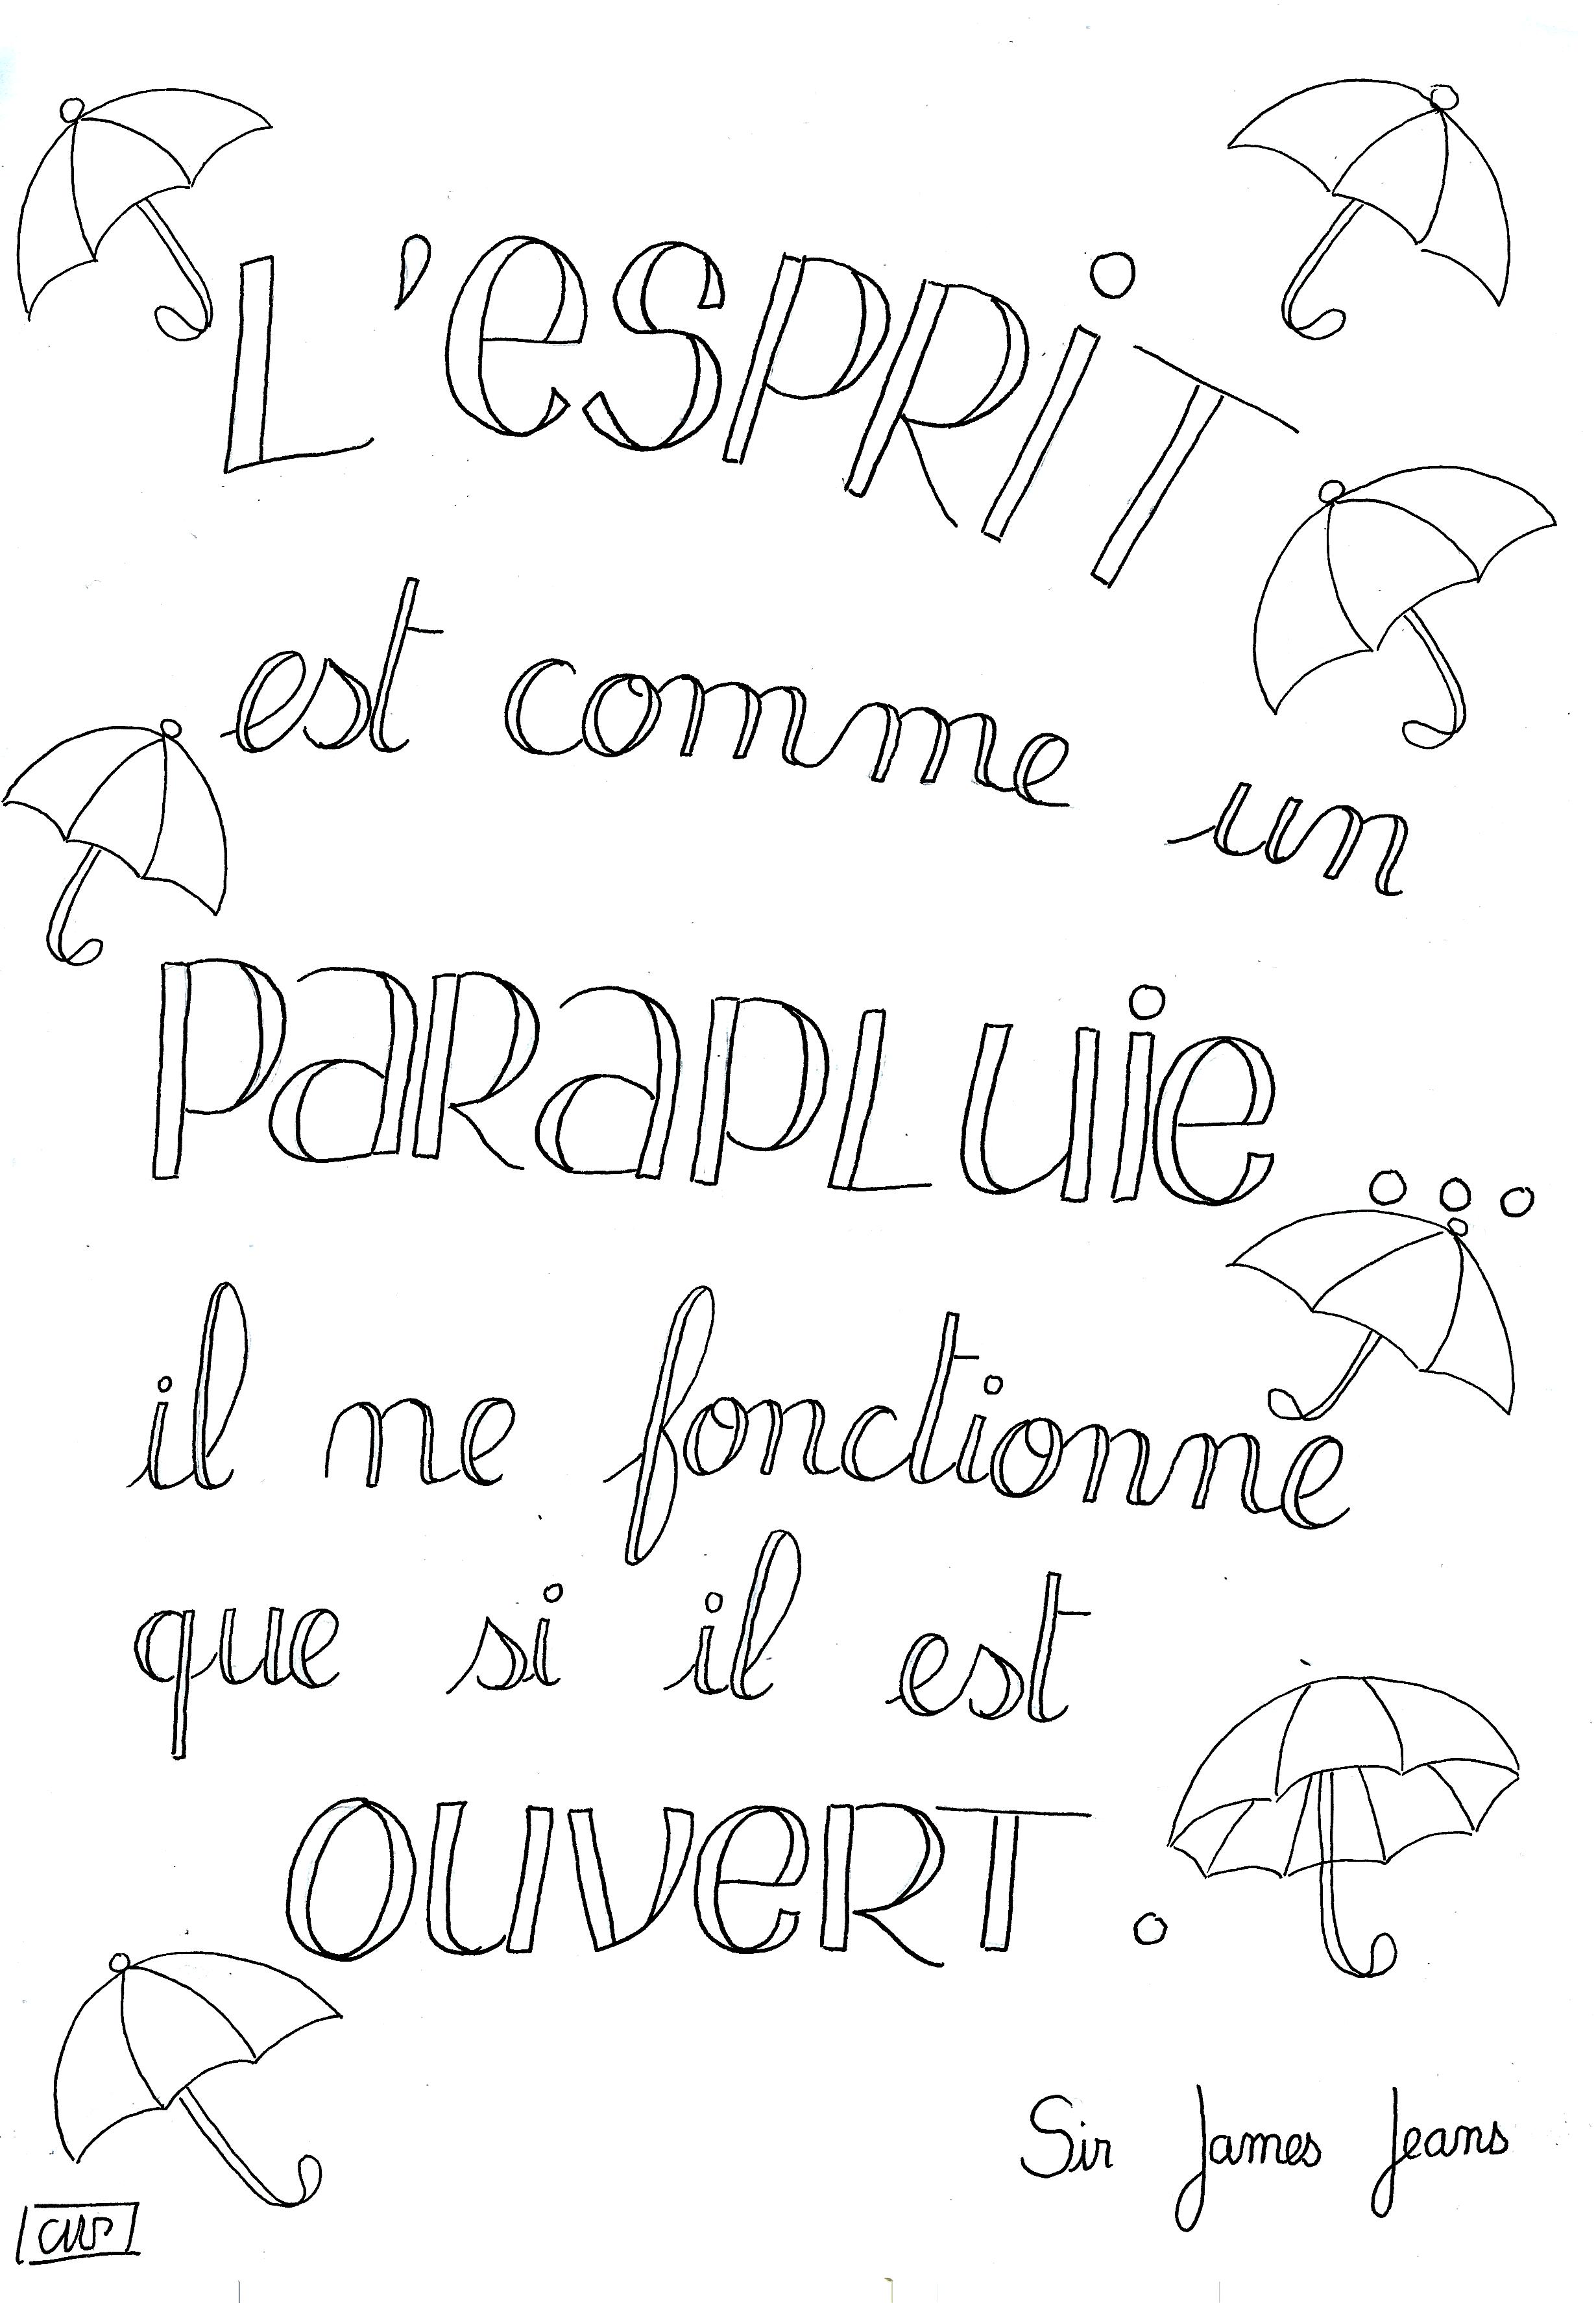 L'esPRiT
est comme un
PaRaPLuie...
il ne fonctionne
que si il est
OUVeRT.
Sir James Jeans